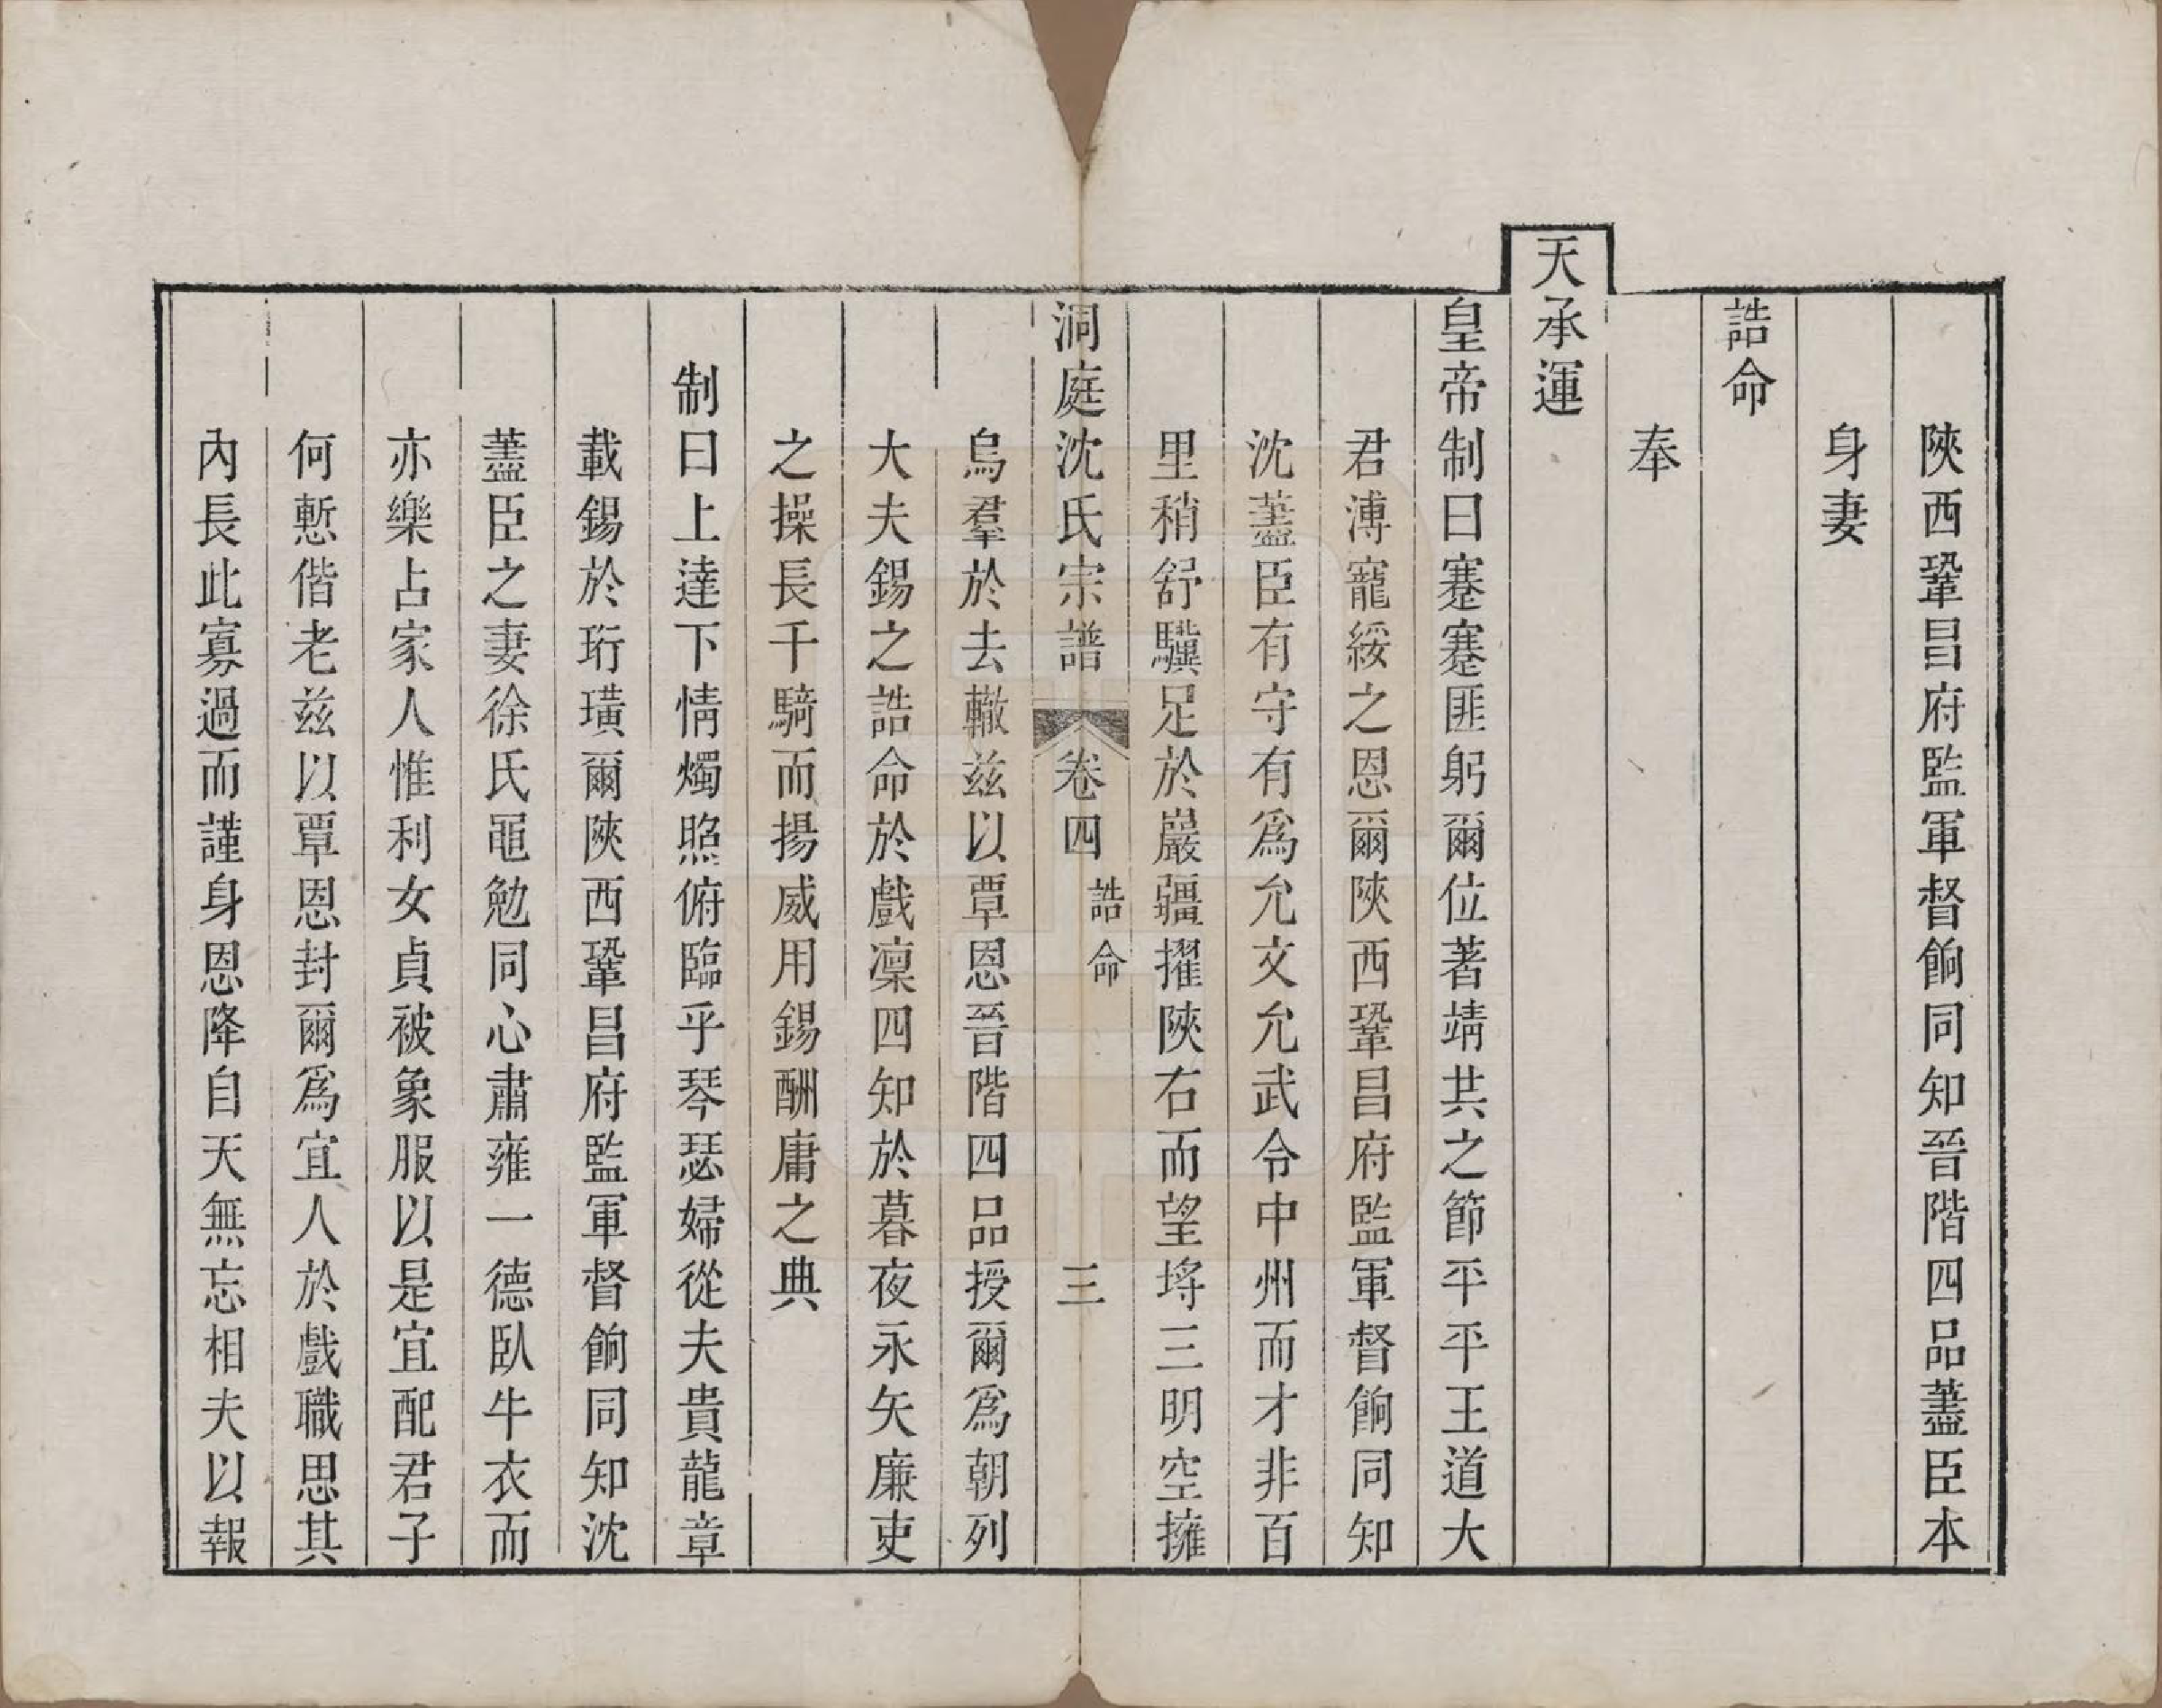 陝西鞏昌府監軍督餉同知晉階四品藎臣本
身妻
誥命
奉
天承運
皇帝制曰蹇蹇匪躬爾位著靖共之節平平王道大
君溥寵綏之恩爾陝西鞏昌府監軍督餉同知
沈藎臣有守有爲允文允武令中州而才非百
里稍舒驥足於巖疆擢陝右而望埓三明空擁
洞庭沈氏宗譜 卷四 誥命 三
烏羣於去轍茲以覃恩晉階四品授爾爲朝列
大夫錫之誥命於戲凜四知於暮夜永矢廉吏
之操長千騎而揚威用錫酬庸之典
制曰上達下情燭照俯臨乎琴瑟婦從夫貴龍章
載錫於珩璜爾陝西鞏昌府監軍督餉同知沈
藎臣之妻徐氏黽勉同心肅雍一德臥牛衣而
亦樂占家人惟利女貞被象服以是宜配君子
何慙偕老茲以覃恩封爾爲宜人於戲職思其
內長此寡過而謹身恩降自天無忘相夫以報